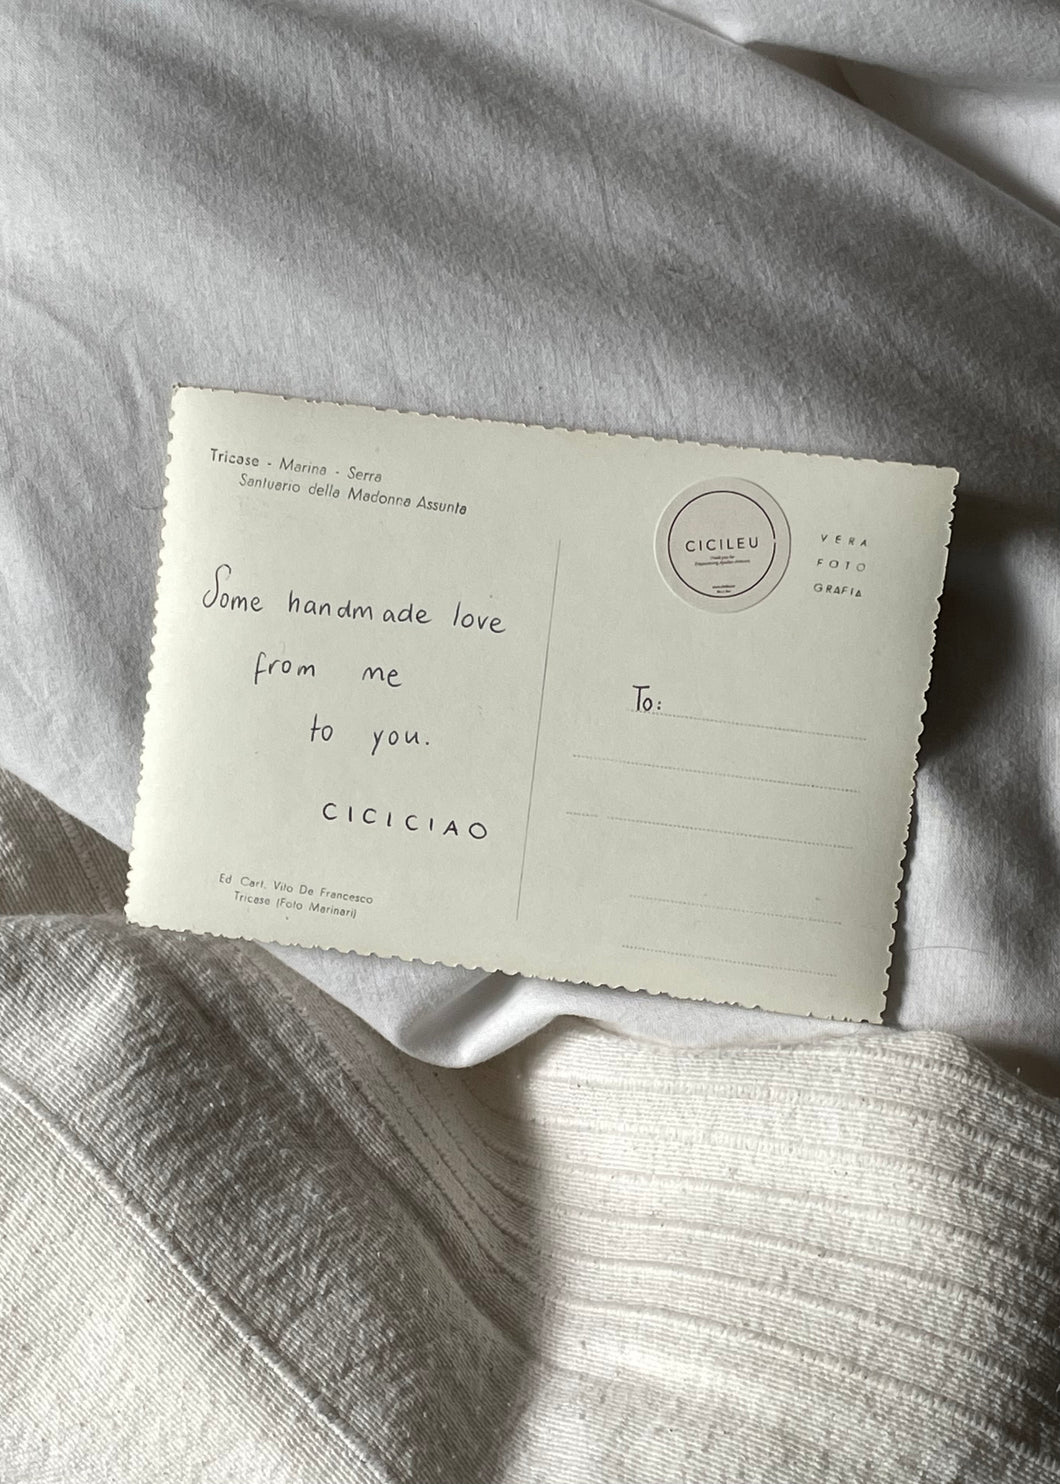 Tricase - Marina - Serra
Santuario della Madonna Assunta
Some handmade love
from me
to you.
CICICIAO
Ed Cart. Vito De Francesco
Tricase (Foto Marinari)
CICILEU
VERA
FOTO
GRAFIA
To: